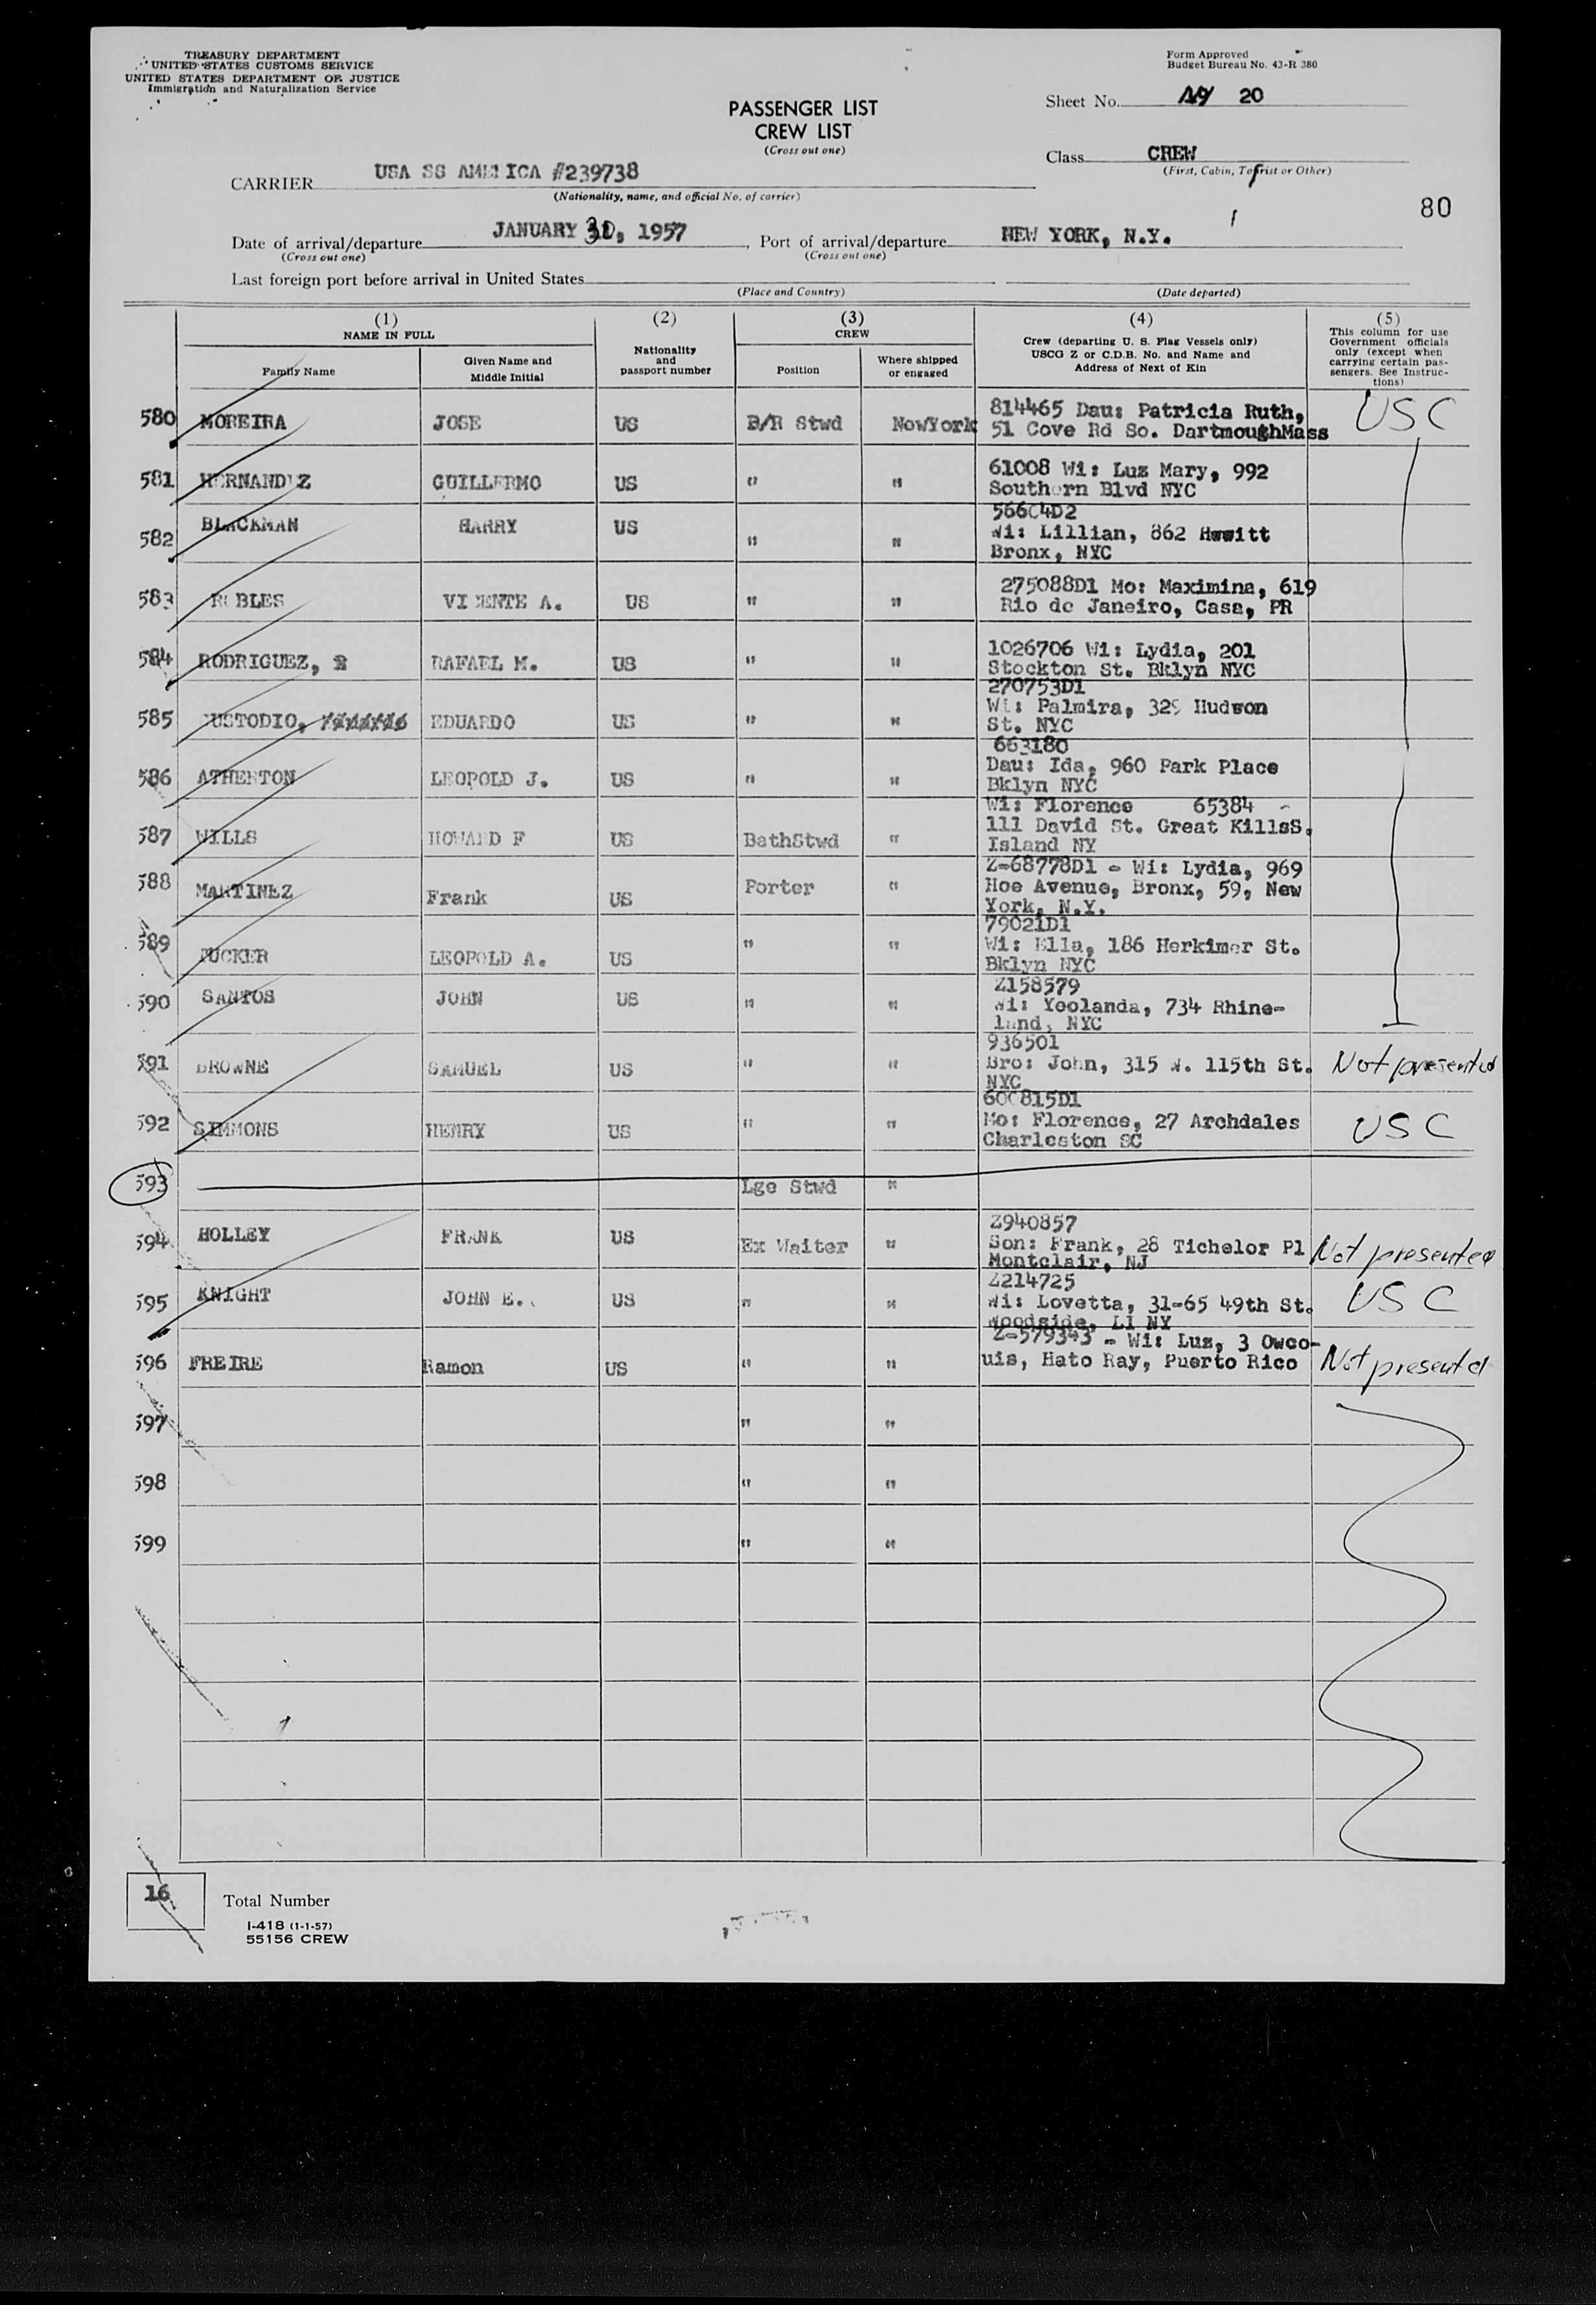 TREASURY DEPARTMENT
UNITED STATES CUSTOMS SERVICE
UNITED STATES DEPARTMENT OF JUSTICE
Immigration and Naturalization Service
Form Approved
Budget Bureau No. 43-R 380
PASSENGER LIST
CREW LIST
(Cross out one)
Sheet No. 20
Class CREW
(First, Cabin, Tourist or Other)
CARRIER USA SS AMERICA #239738
(Nationality, name, and official No. of carrier)
80
Date of arrival/departure JANUARY 31, 1957, Port of arrival/departure NEW YORK, N.Y.
(Cross out one) (Cross out one)
Last foreign port before arrival in United States
(Place and Country) (Date departed)
(1) NAME IN FULL
Family Name
Given Name and Middle Initial
(2) Nationality and passport number
(3) CREW
Position
Where shipped or engaged
(4)
Crew (departing U. S. Flag Vessels only)
USCG Z or C.D.B. No. and Name and
Address of Next of Kin
(5)
This column for use
Government officials
only (except when
carrying certain pas-
sengers. See Instruc-
tions)
580 MOREIRA JOSE US B/R Stwd NewYork 814465 Dau: Patricia Ruth, USC
51 Cove Rd So. DartmoughMass
581 HERNANDEZ GUILLERMO US " " 61008 Wi: Luz Mary, 992
Southern Blvd NYC
582 BLACKMAN HARRY US " " 566C4D2
Wi: Lillian, 862 Hewitt
Bronx, NYC
583 ROBLES VICENTE A. US " " 275088D1 Mo: Maximina, 619
Rio de Janeiro, Casa, PR
584 RODRIGUEZ, R RAFAEL M. US " " 1026706 Wi: Lydia, 201
Stockton St. Bklyn NYC
585 CUSTODIO, EDUARDO US " " 270753D1
Wi: Palmira, 329 Hudson
St. NYC
586 ATHERTON LEOPOLD J. US " " 663180
Dau: Ida, 960 Park Place
Bklyn NYC
587 WILLS HOWARD F US BathStwd " Wi: Florence 65384 -
111 David St. Great KillsS.
Island NY
588 MARTINEZ Frank US Porter " Z-68778D1 - Wi: Lydia, 969
Hoe Avenue, Bronx, 59, New
York, N.Y.
589 TUCKER LEOPOLD A. US " " 79021D1
Wi: Ella, 186 Herkimer St.
Bklyn NYC
590 SANTOS JOHN US " " Z158579
Wi: Yoolanda, 734 Rhine-
land, NYC
591 BROWNE SAMUEL US " " 936501
Bro: John, 315 W. 115th St. Not presented
NYC
592 SIMMONS HENRY US " " 600815D1
Mo: Florence, 27 Archdales USC
Charleston SC
593 Lge Stwd "
594 HOLLEY FRANK US Ex Waiter " Z940857
Son: Frank, 28 Tichelor Pl Not presented
Montclair, NJ
595 KNIGHT JOHN E. US " " Z214725
Wi: Lovetta, 31-65 49th St. USC
Woodside, LI NY
596 FREIRE Ramon US " " Z-579343 - Wi: Luz, 3 Owco-
uis, Hato Ray, Puerto Rico Not presented
597 " "
598 " "
599 " "
16 Total Number
I-418 (1-1-57)
55156 CREW